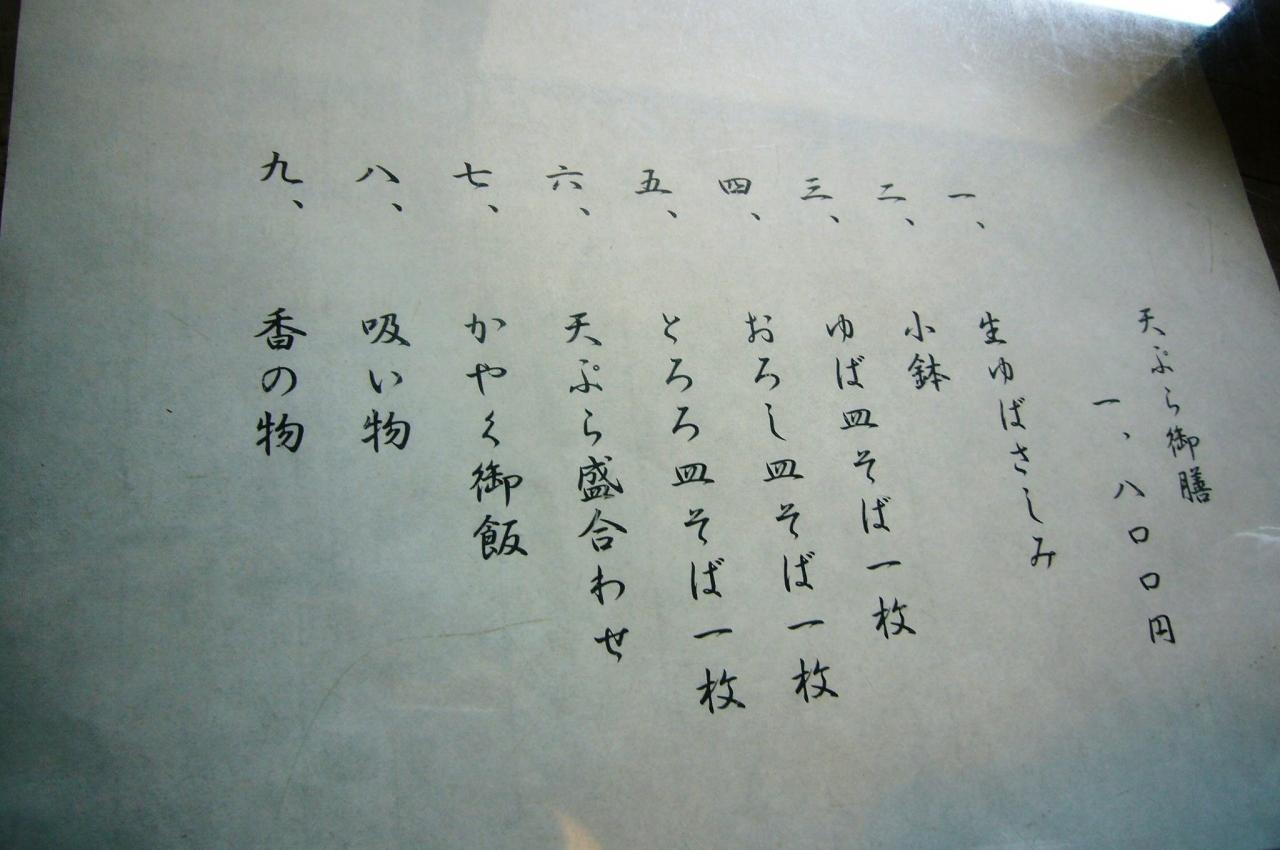 天ぷら御膳
一、八〇〇円
一、生ゆばさしみ
二、小鉢
三、ゆば皿そば一枚
四、おろし皿そば一枚
五、とろろ皿そば一枚
六、天ぷら盛合わせ
七、かやく御飯
八、吸い物
九、香の物